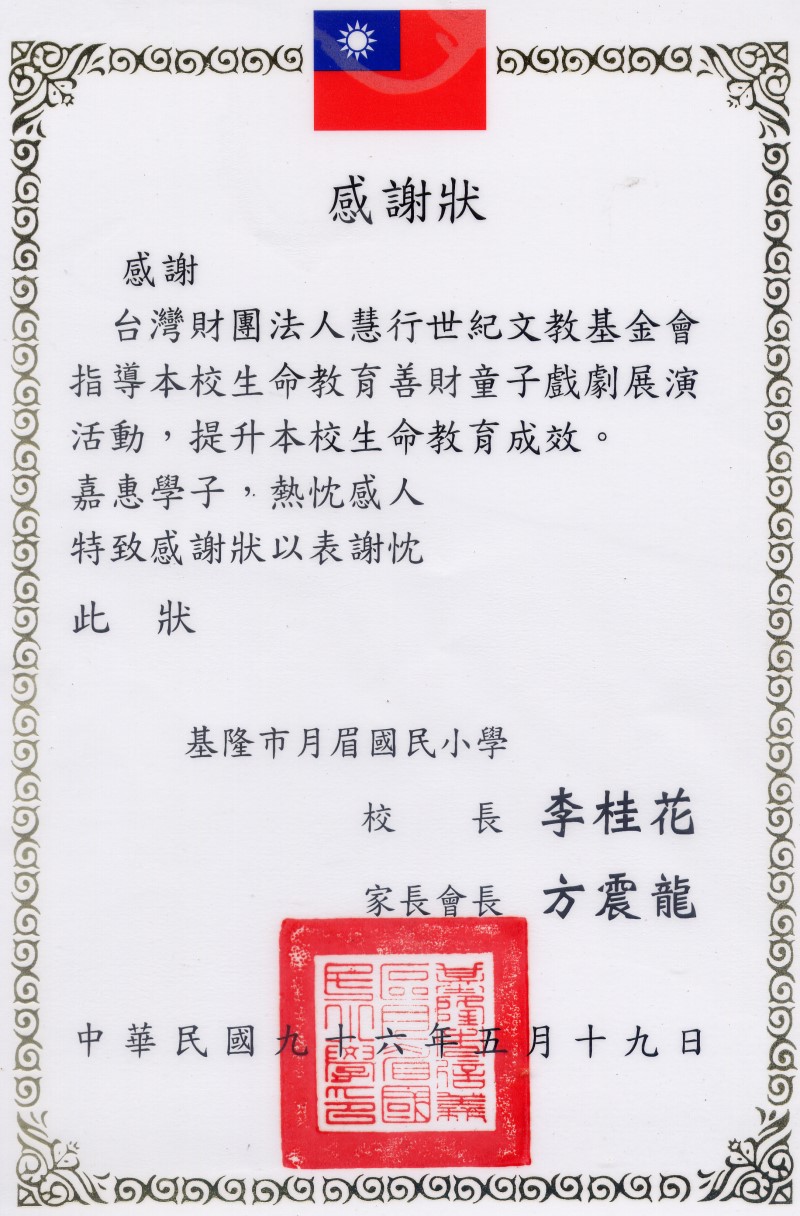 感謝狀
感謝
台灣財團法人慧行世紀文教基金會
指導本校生命教育善財童子戲劇展演
活動，提升本校生命教育成效。
嘉惠學子，熱忱感人
特致感謝狀以表謝忱
此　狀
基隆市月眉國民小學
校　長　李桂花
家長會長　方震龍
中華民國九十六年五月十九日
基隆市信義
區月眉國
民小學印